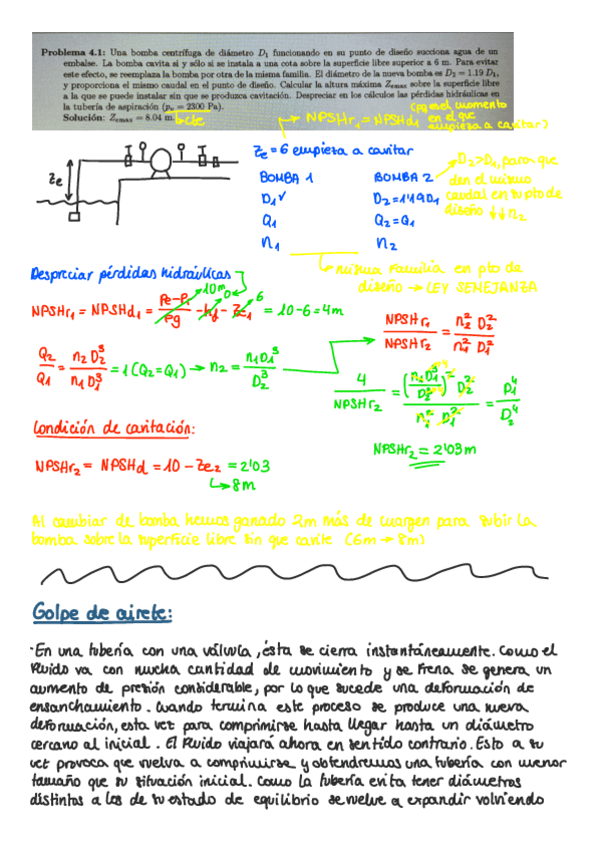 Problema 4.1: Una bomba centrífuga de diámetro D₁ funcionando en su punto de diseño succiona agua de un
embalse. La bomba cavita si y sólo si se instala a una cota sobre la superficie libre superior a 6 m. Para evitar
este efecto, se reemplaza la bomba por otra de la misma familia. El diámetro de la nueva bomba es D₂ = 1.19 D₁,
y proporciona el mismo caudal en el punto de diseño. Calcular la altura máxima Zemax sobre la superficie libre
a la que se puede instalar sin que se produzca cavitación. Despreciar en los cálculos las pérdidas hidráulicas en
la tubería de aspiración (pv = 2300 Pa).
Solución: Zemax = 8.04 m.
cte
NPSHr₁ = NPSHd₁
(para el momento
en el que
empieza a cavitar)
Ze
Ze = 6 empieza a cavitar
BOMBA 1 BOMBA 2
D₁✓ D₂=1'19D₁
Q₁ Q₂=Q₁
n₁ n₂
D₂>D₁, para que
den el mismo
caudal en su pto de
diseño ↓↓n₂
misma familia en pto de
diseño → LEY SEMEJANZA
Despreciar pérdidas hidráulicas
NPSHr₁ = NPSHd₁ = (Pe-Pv)/ρg - hf - Ze₁ = 10-6 = 4m
10m 0 6
NPSHr₁/NPSHr₂ = n₁² D₁²/n₂² D₂²
Q₂/Q₁ = n₂D₂³/n₁D₁³ = 1 (Q₂=Q₁) → n₂ = n₁D₁³/D₂³
4/NPSHr₂ = D₁⁴/D₂⁴
NPSHr₂ = 2'03m
Condición de cavitación:
NPSHr₂ = NPSHd = 10 - Ze₂ = 2'03
↳ 8m
Al cambiar de bomba hemos ganado 2m más de margen para subir la
bomba sobre la superficie libre sin que cavite (6m → 8m)
Golpe de ariete:
·En una tubería con una válvula, ésta se cierra instantáneamente. Como el
fluido va con mucha cantidad de movimiento y se frena se genera un
aumento de presión considerable, por lo que sucede una deformación de
ensanchamiento. Cuando termina este proceso se produce una nueva
deformación, esta vez para comprimirse hasta llegar hasta un diámetro
cercano al inicial. El fluido viajará ahora en sentido contrario. Esto a su
vez provoca que vuelva a comprimirse y obtendremos una tubería con menor
tamaño que su situación inicial. Como la tubería evita tener diámetros
distintos a los de su estado de equilibrio se vuelve a expandir volviendo